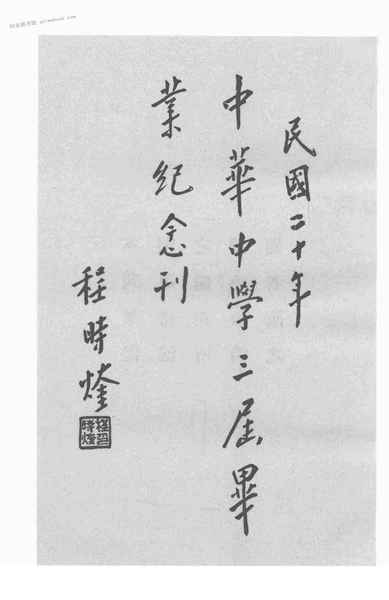 民國二十年
中華中學三屆畢
業紀念刊
程時煃
程時煃